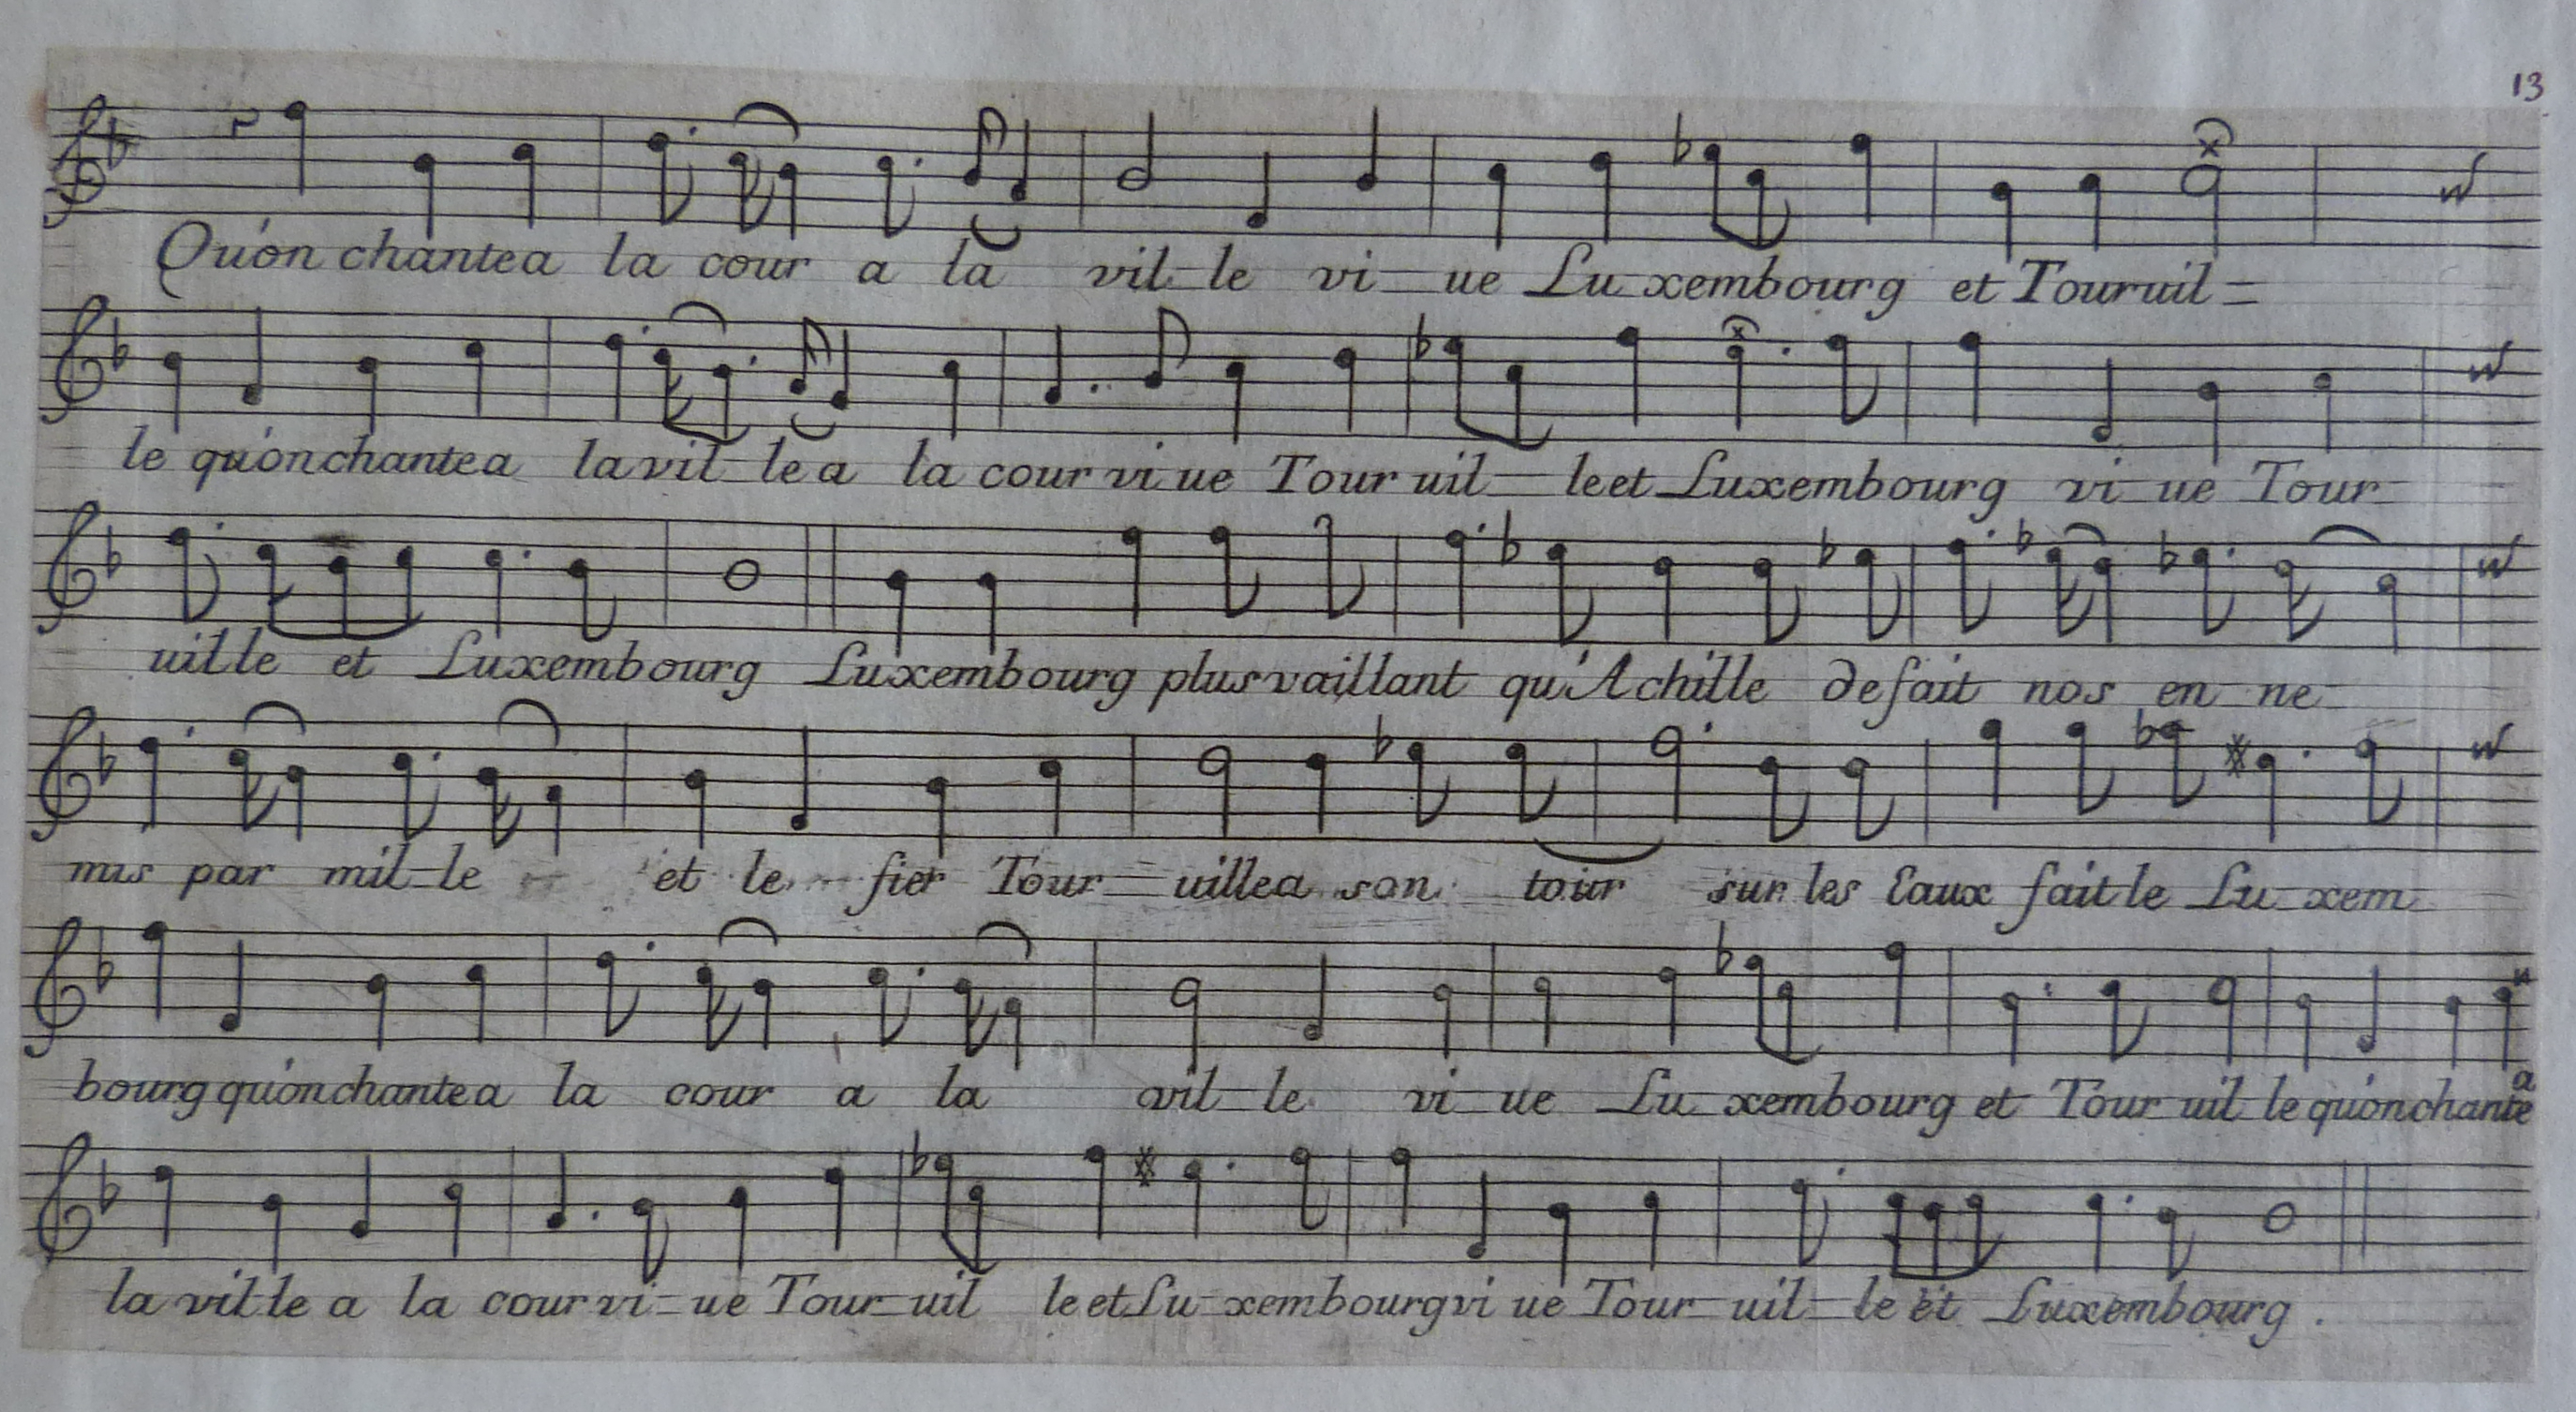 13
Qu'on chante a la cour a la vil-le vi-ue Lu xembourg et Touruil=
le qu'on chante a la vil-le a la cour vi ue Tour uil-le et Luxembourg vi-ue Tour-
uille et Luxembourg Luxembourg plus vaillant qu'Achille defait nos en-ne-
mis par mil-le et le fier Tour-uille a son tour sur les Eaux fait le Lu-xem-
bourg qu'on chante a la cour a la vil-le vi-ue Lu xembourg et Tour uil le qu'on chante a
la ville a la cour vi-ue Tour-uil le et Lu-xembourg vi ue Tour-uil-le et Luxembourg.